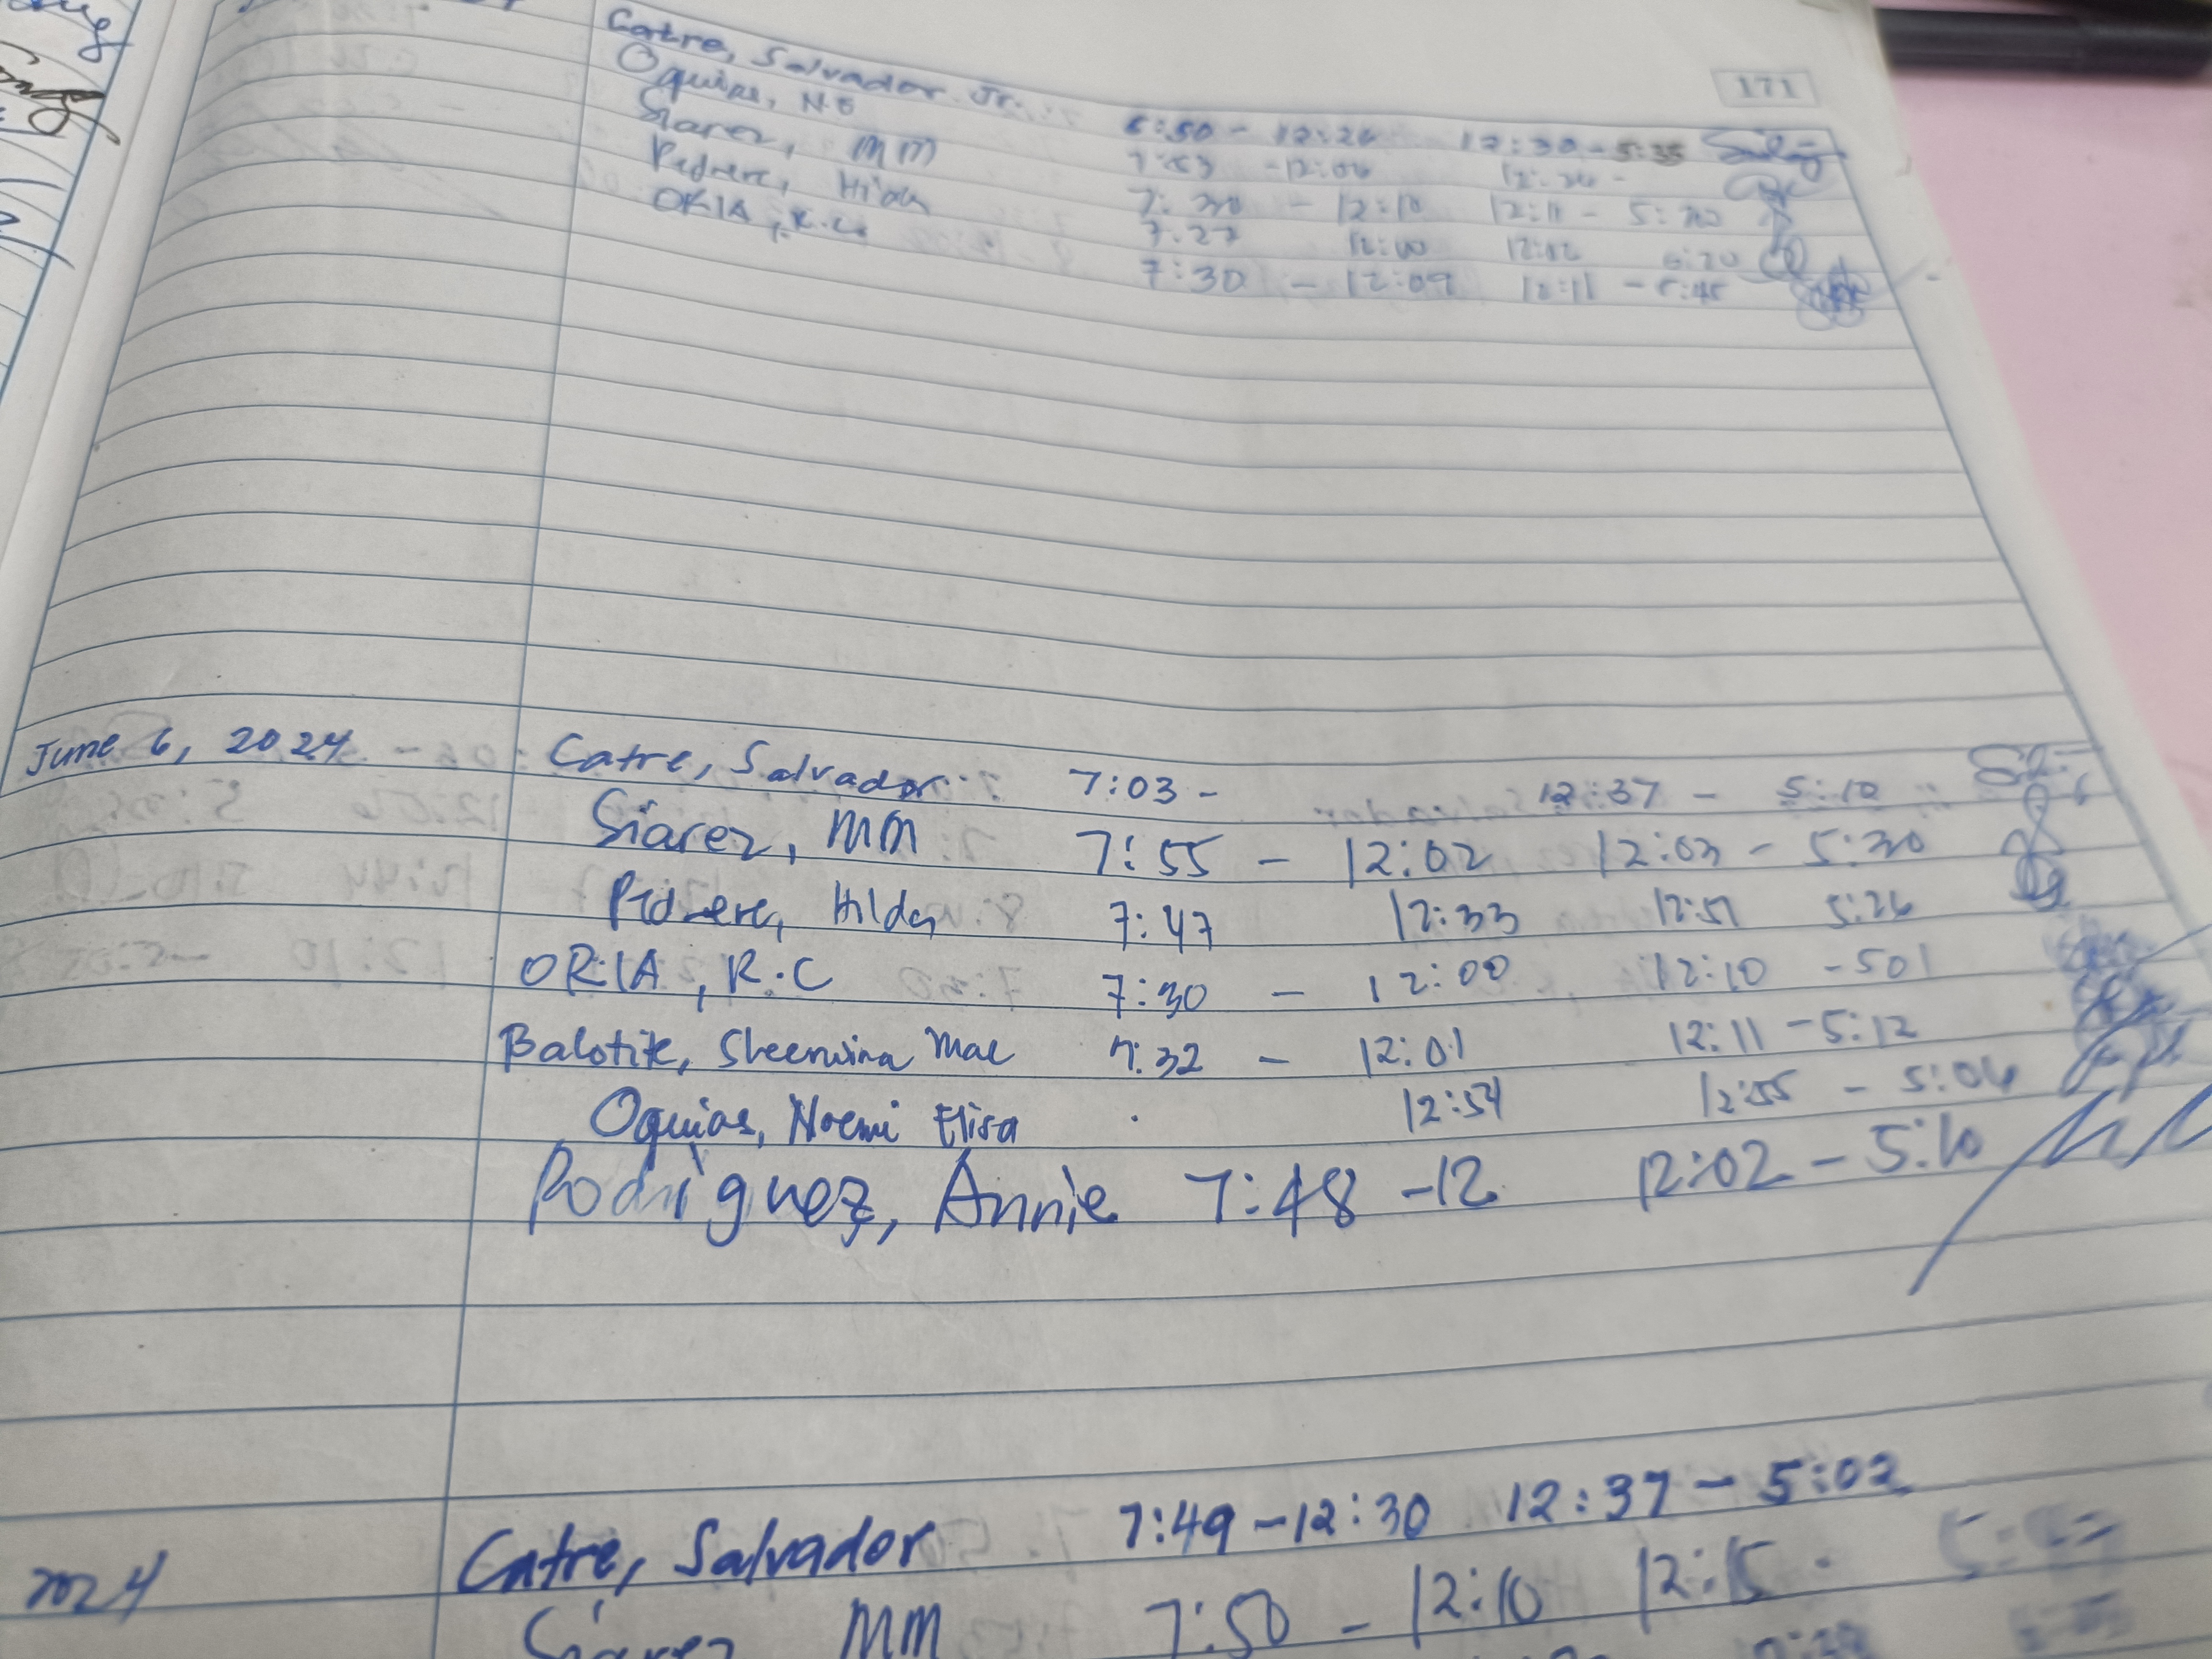 171
Catre, Salvador Jr. 6:50 - 12:26 12:30 - 5:35
Oquias, N.E 7:53 - 12:06
Siarez, MM 7:30 - 12:10 12:11 - 5:30
Pedrere, Hilda 7:27 12:00 12:02
ORIA, R.C. 7:30 - 12:09 12:11 - 5:45
June 6, 2024 - Catre, Salvador 7:03 - 12:37 - 5:10
Siarez, MM 7:55 - 12:02 12:03 - 5:30
Pedrere, Hilda 7:47 12:33 12:51 5:26
ORIA, R.C 7:30 - 12:00 12:10 - 501
Balotite, Sheenwina Mae 7:32 - 12:01 12:11 - 5:12
Oquias, Noemi Elisa 12:54 12:55 - 5:04
Rodriguez, Annie 7:48 - 12 12:02 - 5:10
2024 Catre, Salvador 7:49 - 12:30 12:37 - 5:02
Siarez MM 7:50 - 12:10 12:15 -